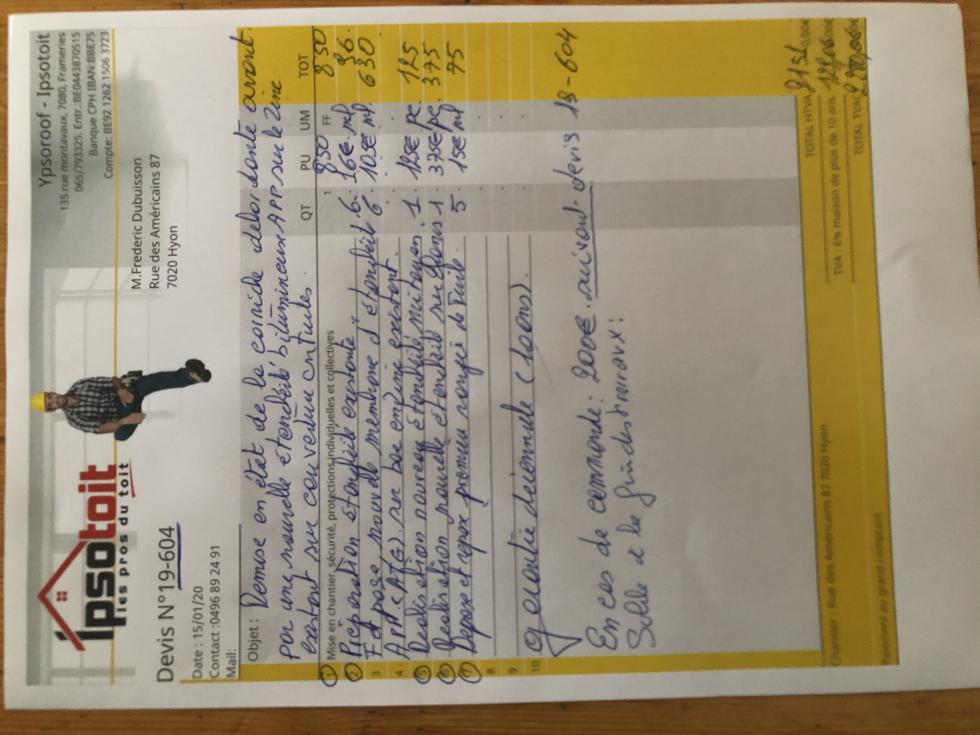 ipsotoit
les pros du toit
Ypsoroof - Ipsotoit
135 rue montavaux, 7080, Frameries
065/793325. Entr.:BE0443870515
Banque CPH IBAN:BBE75
Compte: BE92 1262 1506 3723
Devis N°19-604
Date : 15/01/20
Contact :0496 89 24 91
Mail:
M.Frederic Dubuisson
Rue des Américains 87
7020 Hyon
Objet : Remise en état de la corniche debordante avant
par une nouvelle étanchéité bitumineux APP sur le zinc
existant sur
QT PU UM TOT
① Mise en chantier, sécurité, protections individuelles et collectives 1 850 FF 850
② Préparation étanchéité existante. 6. 16€ mf 96.
3 Et pose nouvelle membrane d'étanchéité 6 105€ mf 630
4 APP (AT G). sur base existant.
⑤ Réalisation nouveau étanchéité mitoyen. 1 125€ pc 125
⑥ Réalisation nouvelle étanchéité sur 1 375€/pc 375
⑦ Depose et repose premier rangé de Tuile. 5 15€ mf 75
8
9
10
garantie décennale (10ans).
En cas de commande: 200€. suivant devis 19-604
Solde à la fin des travaux!
TOTAL HTVA 2151
Chantier : Rue des Américains 87 7020 Hyon TVA : 6% maison de plus de 10 ans
Paiement au grand comptant TOTAL TVAC